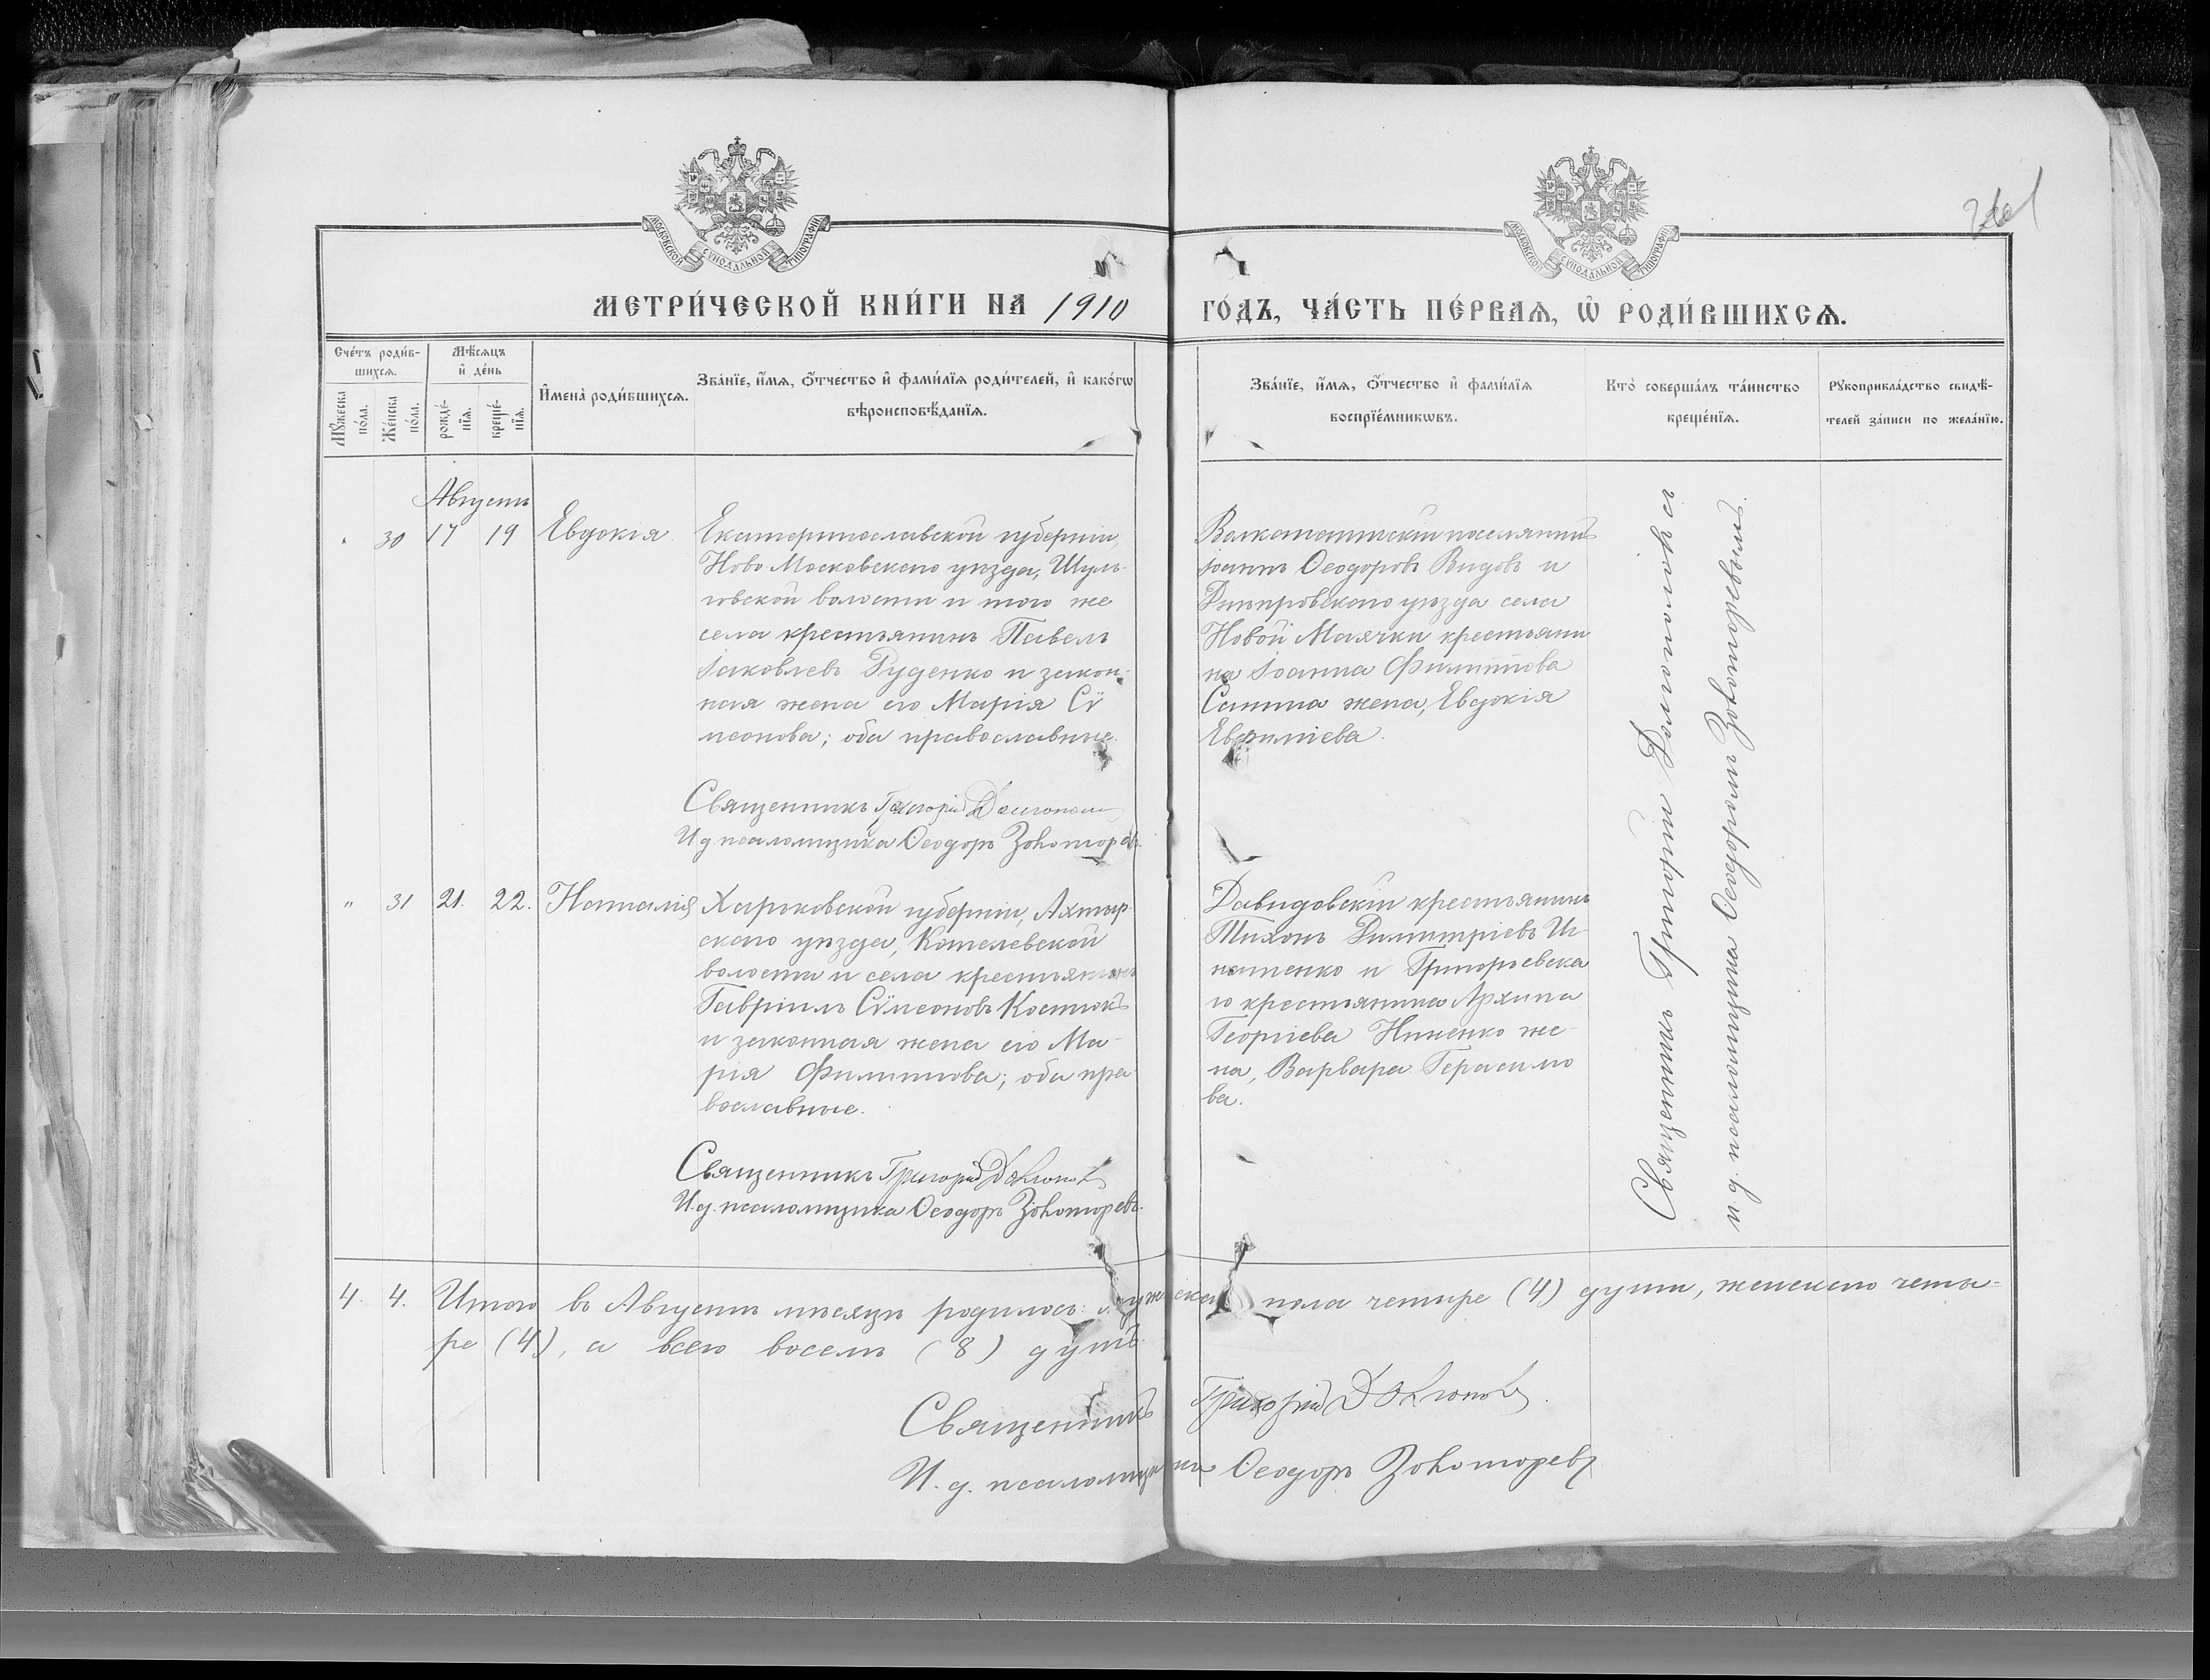 МОСКОВСКОЙ СѴНОДАЛЬНОЙ ТИПОГРАФІИ
МОСКОВСКОЙ СѴНОДАЛЬНОЙ ТИПОГРАФІИ
МЕТРИ́ЧЕСКОЙ КНИ́ГИ НА 1910 ГО́ДЪ, ЧА́СТЬ ПЕ́РВАѦ, Ѡ҆ РОДИ́ВШИХСѦ.
Сче́тъ роди́в-
шихсѧ.
Мꙋ́жеска
по́ла.
Же́нска
по́ла.
Мѣ́сѧцъ
и҆ де́нь
рожде́-
нїѧ.
креще́-
нїѧ.
И҆мена̀ роди́вшихсѧ.
Зва́нїе, и҆́мѧ, ѻ҆́тчество и҆ фами́лїѧ роди́телей, и҆ како́гѡ
вѣроисповѣ́данїѧ.
Зва́нїе, и҆́мѧ, ѻ҆́тчество и҆ фами́лїѧ
воспрїе́мникѡвъ.
Кто̀ соверша́лъ та́инство
креще́нїѧ.
Рꙋкоприкла́дство свидѣ́-
телей за́писи по жела́нїю.
Августъ
30 17 19 Евдокія
Екатеринославской губерніи,
Ново-Московскаго уѣзда, Шуль-
говской волости и того же
села крестьянинъ Павелъ
Іаковлевъ Руденко и закон-
ная жена его Марія Сѵ
меонова; оба православные.
Священникъ Григорій Долгополъ
И д псаломщика Ѳеодоръ Золоторевъ.
поселянинъ
Іоаннъ Ѳеодоровъ Видовъ и
Днѣпровскаго уѣзда села
Новой Маячки крестьяни
на Іоанна Филиппова
жена, Евдокія
" 31 21. 22. Наталія
Харьковской губерніи, Ахтыр-
скаго уѣзда, Котелевской
волости и села крестьянинъ
Гавріилъ Сѵмеоновъ Костюкъ
и законная жена его Ма-
рія Филиппова; оба пра-
вославные.
Священникъ Григорій Долгополъ
И.д. псаломщика Ѳеодоръ Золоторевъ.
Давидовскій крестьянинъ
Тихонъ Димитріевъ Иг-
натенко и Григорьевска
го крестьянина Архипа
Георгіева Ниженко же-
на, Варвара Герасимо
ва.
Священникъ Григорій Долгополъ съ
и д. псаломщика Ѳеодоромъ Золоторевымъ.
4. 4. Итого въ Августѣ мѣсяцѣ родилось: мужеска пола четыре (4) души, женскаго четы-
ре (4), а всего восемь (8) душъ
Священникъ Григорій Долгополъ.
И.д. псаломщика Ѳеодоръ Золоторевъ